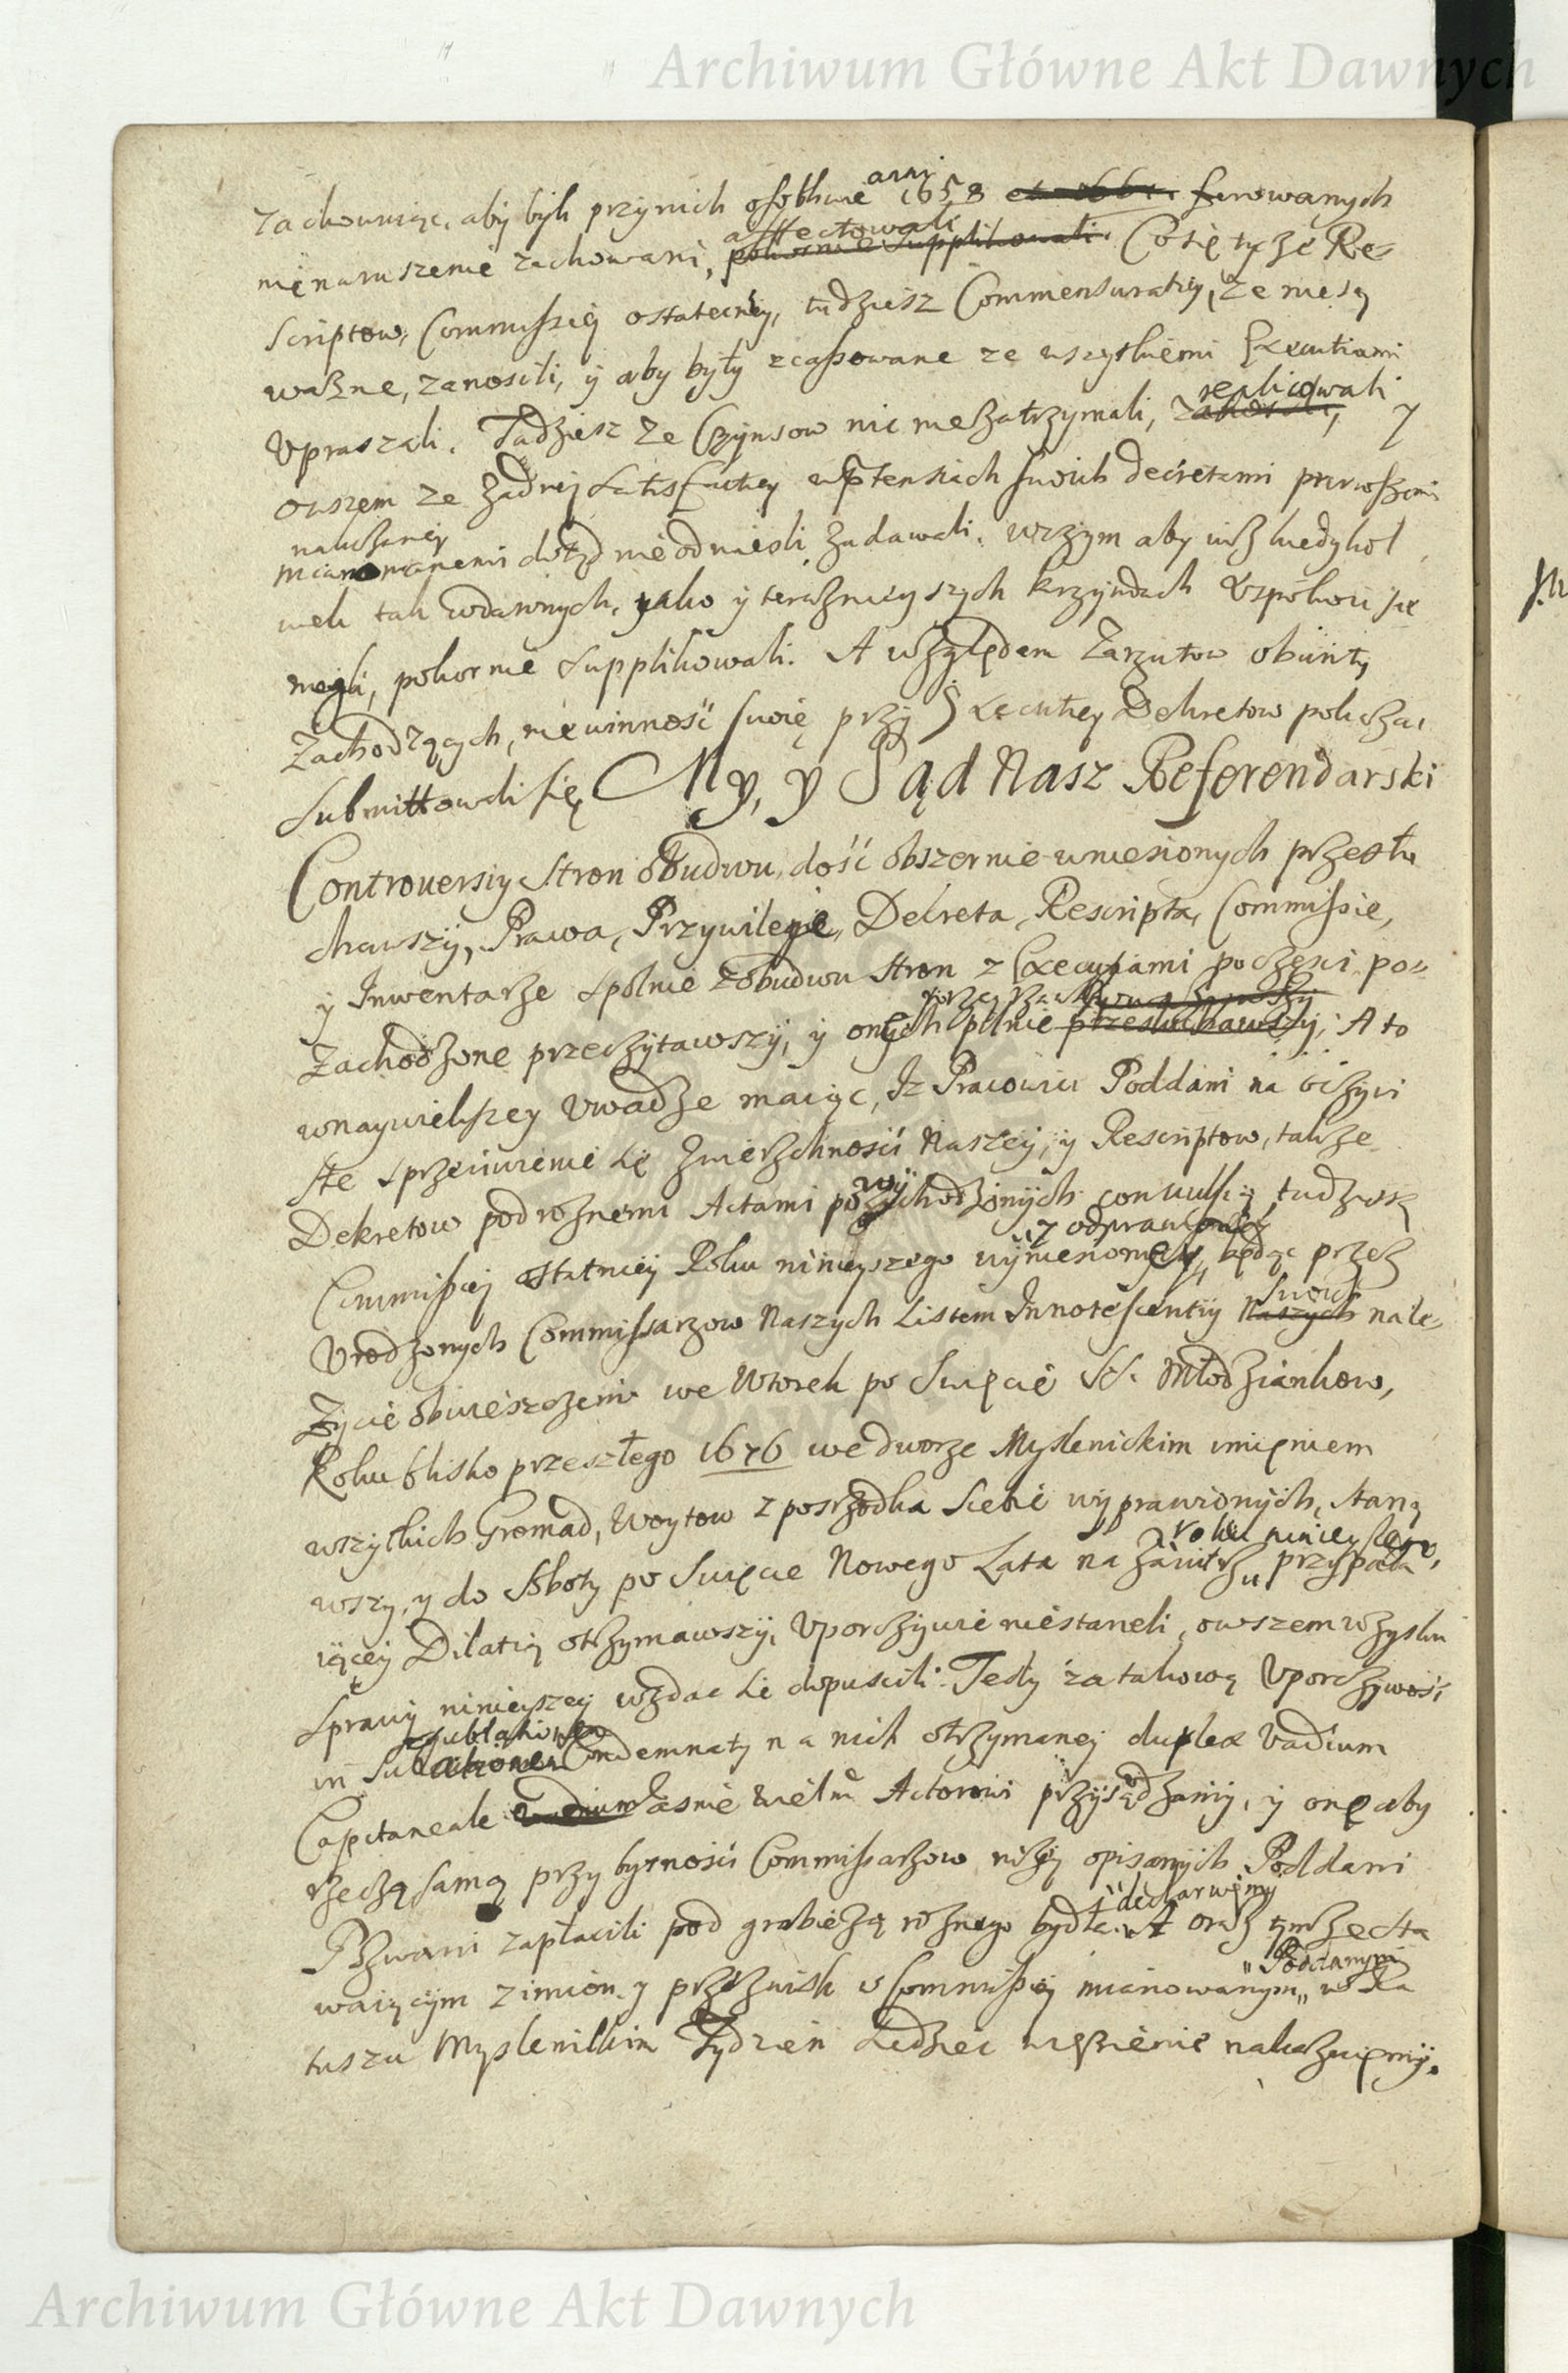 Archiwum Główne Akt Dawnych
zachowuiąc, aby byli przy nich osobliwie anni 1658 ferowanych
nienaruszenie zachowani, affectowali pokornie supplikowali. Co się tycze Re-
scriptow, Commissiey ostateczney, tudziesz Commensuratiey, że nie są
ważne, zanosili, y aby były zcassowane ze wszytkiemi Executiami
Upraszali. Tudziesz ze Czynsow nic niezatrzymali, replicowali y
owszem ze żadney satisfactiey w ptensiach swoich decretami pierwszemi
nakazaney
mianowanemi dotąd nie odniesli zadawali. wczym aby iusz kiedykol
wiek tak zdawnych, yako y teraznieyszych krzywdach Uspokoić się
mogli, pokornie supplikowali. A względem Zarzutow o bunty
Zachodzących, niewinność swoię przy Executiey Dekretow pokazać
Submittowali się My, y Sąd Nasz Referendarski
Controuersiy Stron obudwu, dość obszernie wniesionych przesłu
chawszy, Prawa, Przywileie, Dekreta, Rescripta, Commissie,
y Inwentarze spolnie z obudwu stron z Executiami poczęsci po-
Zachodzone przeczytawszy, y onych pilnie przesłuchawszy, A to
wnaywiększey Uwadze maiąc, Iz Pracowici Poddani na oczywi
ste sprzeciwienie się Zwierzchności Naszey, y Rescriptow, także
Dekretow podroznemi Actami powychodzonych convulsią tudziesz
Commissiey Statniey Roku ninieyszego wymienioney y odprawioney będąc przez
Urodzonych Commissarzow Naszych Listem Innotescentiy swoich Naszych nale-
życie obwieszczeni we Wtorek po Swięcie SS. Młodziankow,
Roku blisko przeszłego 1676 we dworze Myslenickim imieniem
wszytkich Gromad, Woytow z posrzodka siebie wyprawionych, staną
wszy, y do Soboty po Swięcie Nowego Lata na zaiutrz roku ninieyszego, przypada
iącey Dilatią otrzymawszy, Uporczywie niestaneli, owszem wzysku
sprawy ninieyszey wzdac sie dopuscili. Tedy za takową Uporczywość
Condemnaty na nich otrzymaney duplex Vadium
Capitaneale Vadium Jasnie Wielm Actorowi przysądzamy, y onę aby
rzeczą samą przy bytności Commissarzow niżey opisanych Poddani
Pozwani zapłacili pod grabieżą roznego bydła declarujemy A oraz tym Zechta
waiącym z imion y przezwisk w Commissiey mianowanym Poddanym w Ra
tuszu Myslenickim Tydzień siedzieć więzienie nakazuiemy.
Archiwum Główne Akt Dawnych